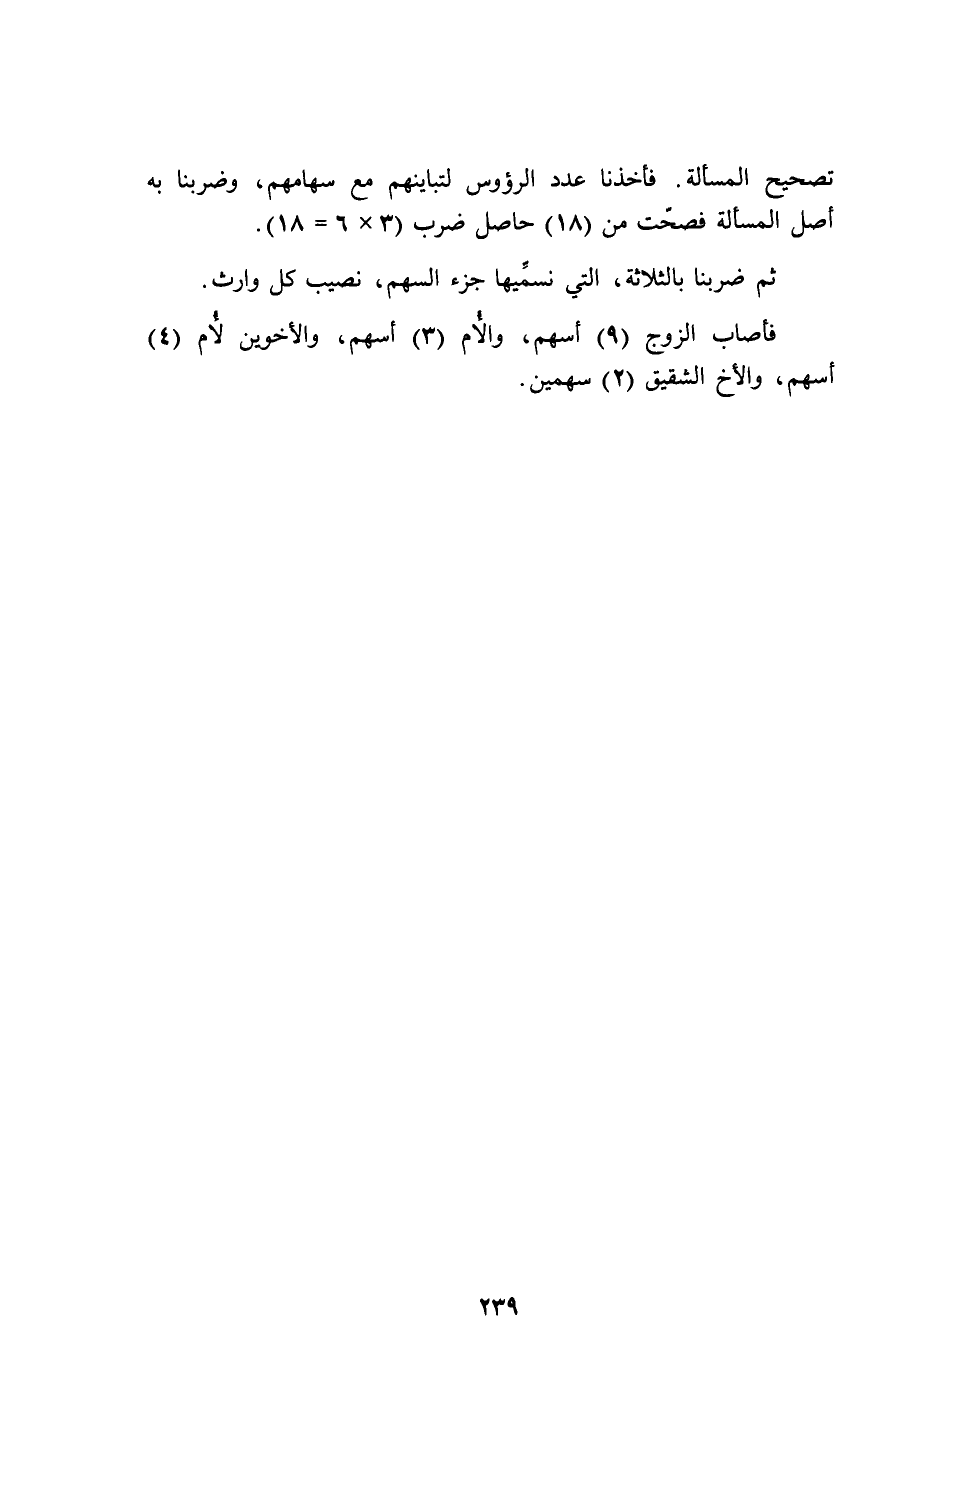 تصحيح المسألة. فأخذنا عدد الرؤوس لتباينهم مع سهامهم، وضربنا به
أصل المسألة فصحّت من (١٨) حاصل ضرب (٣ × ٦ = ١٨).
ثم ضربنا بالثلاثة، التي نسمِّيها جزء السهم، نصيب كل وارث.
فأصاب الزوج (٩) أسهم، والأُم (٣) أسهم، والأخوين لأُم (٤)
أسهم، والأخ الشقيق (٢) سهمين.
٢٣٩